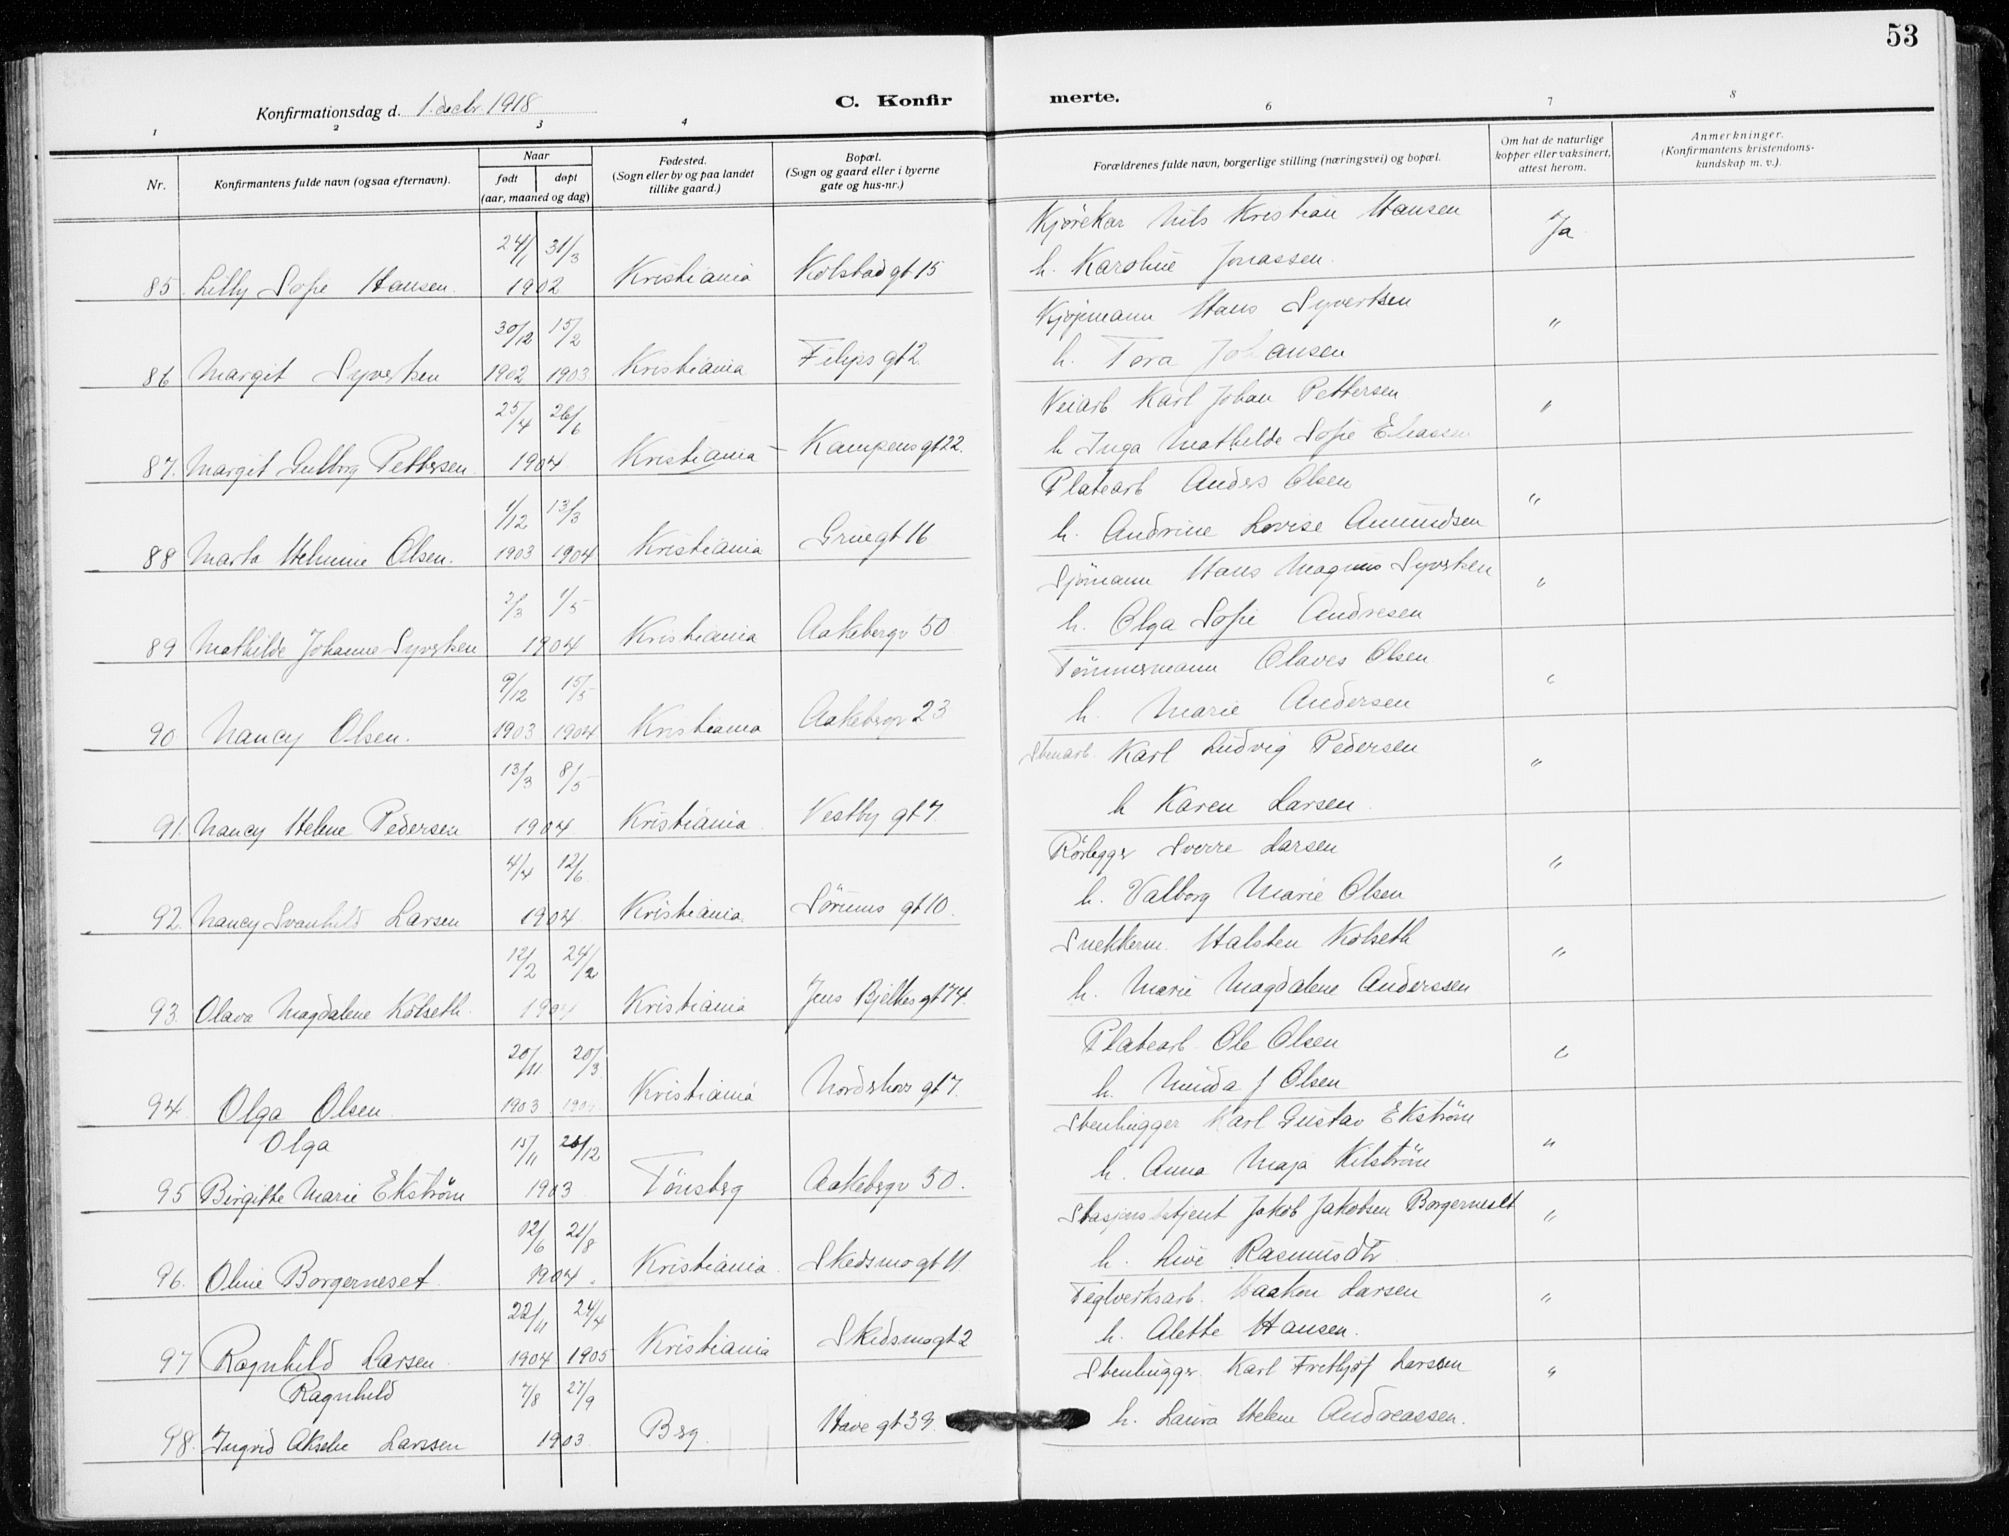 53
Konfirmationsdag d. 1. decbr. 1918
C. Konfir merte.
1 2 3 4 6 7 8
Nr.
Konfirmantens fulde navn (ogsaa efternavn).
Naar
født døpt
(aar, maaned og dag)
Fødested.
(Sogn eller by og paa landet
tillike gaard.)
Bopæl.
(Sogn og gaard eller i byerne
gate og hus-nr.)
Forældrenes fulde navn, borgerlige stilling (næringsvei) og bopæl.
Om hat de naturlige
kopper eller vaksinert,
attest herom.
Anmerkninger.
(Konfirmantens kristendoms-
kundskap m. v.).
24/1 31/3 Kjørekar Nils Kristian Hansen Ja
85. Lilly Sofie Hansen. 1902 Kristiania Kolstadgt 15 h. Karoline Jonassen.
30/12 15/2 Hans Syvertsen "
86 Margit Syvertsen 1902 1903 Kristiania Filips gt 2 h. Tora Johansen
25/4 26/6 Veiarb Karl Johan Pettersen "
87. Margit Gulborg Pettersen. 1904 Kristiania Kampens gt 22. h Inga Mathilde Sofie Eliassen
1/12 13/3 Platearb Anders Olsen "
88 Marta Helmine Olsen. 1903 1904 Kristiania Gruegt 16 h. Andrine Lovise Amundsen
2/3 1/5 Sjømann Hans Magnus Syvertsen "
89 Mathilde Johanne Syvertsen 1904 Kristiania Aakebergv 50 h. Olga Sofie Andresen
9/12 15/5 Tömmermann Olaves Olsen "
90 Nancy Olsen. 1903 1904 Kristiania Aakebergv 23 h. Marie Andersen
13/3 8/5 Stenarb. Karl Ludvig Pedersen "
91. Nancy Helene Pedersen 1904 Kristiania. Vestby gt 7 h Karen Larsen.
4/4 12/6 Rörlegger Sverre Larsen "
92. Nancy Svanhild Larsen 1904. Kristiania. Sörums gt 10. h. Valborg Marie Olsen
12/2 24/2 Snekkerm. Halsten Kolseth "
93. Olava Magdalene Kolseth. 1904 Kristiania Jens Bjelkes gt 74. h. Marie Magdalene Anderssen
20/11 20/3 Platearb. Ole Olsen "
94. Olga Olsen. 1903 1904 Kristiania gt 7. h. Minda J Olsen
Olga 15/11 26/12 Stenhugger Karl Gustav Ekström "
95 Birgitte Marie Ekström 1903 Tönsberg Aakebergv 50. h. Anna Maja Kilström
12/6 21/8 Stasjonsbetjent Jakob Jakobsen Borgerneset "
96. Oline Borgerneset. 1904. Kristiania. Skedsmogt 11 h. Rasmusdtr
22/11 24/4 Teglverksarb. Haakon Larsen "
97 Ragnhild Larsen 1904 1905 Kristiania Skedsmogt 2 h. Alette Hansen.
Ragnhild 7/8 27/9 Stenhugger Karl Frethjof Larssen "
98. Ingrid Larssen 1903. Berg. Have gt 39 h. Laura Helene Andreassen.